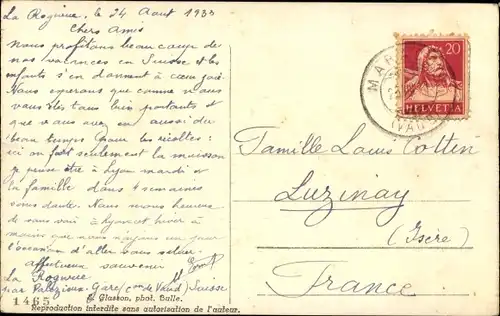 La Rogivue, le 24 Aout 1933
Chers Amis
Nous profitons beaucoup de
nos vacances en Suisse et les
enfants s'en donnent à coeur joie.
Nous esperons que comme nous
vous etes tous bien portants et
que vous avez eu aussi du
beau temps pour les récoltes:
ici on fait seulement la moisson
je pense être à Lyon mardi et
la famille dans 4 semaines
sans doute. Nous serons heureux
de vous voir à Lyon cet hiver à
moins que nous ayons
l'occasion d'aller vous
affectueux souvenir
La Rogivue
par Palézieux-Gare (Con de Vaud) Suisse
1465 Glasson, phot. Bulle.
Reproduction interdite sans autorisation de l'auteur.
20
HELVETIA
Famille Louis Cotten
Luzinay
(Isère)
France